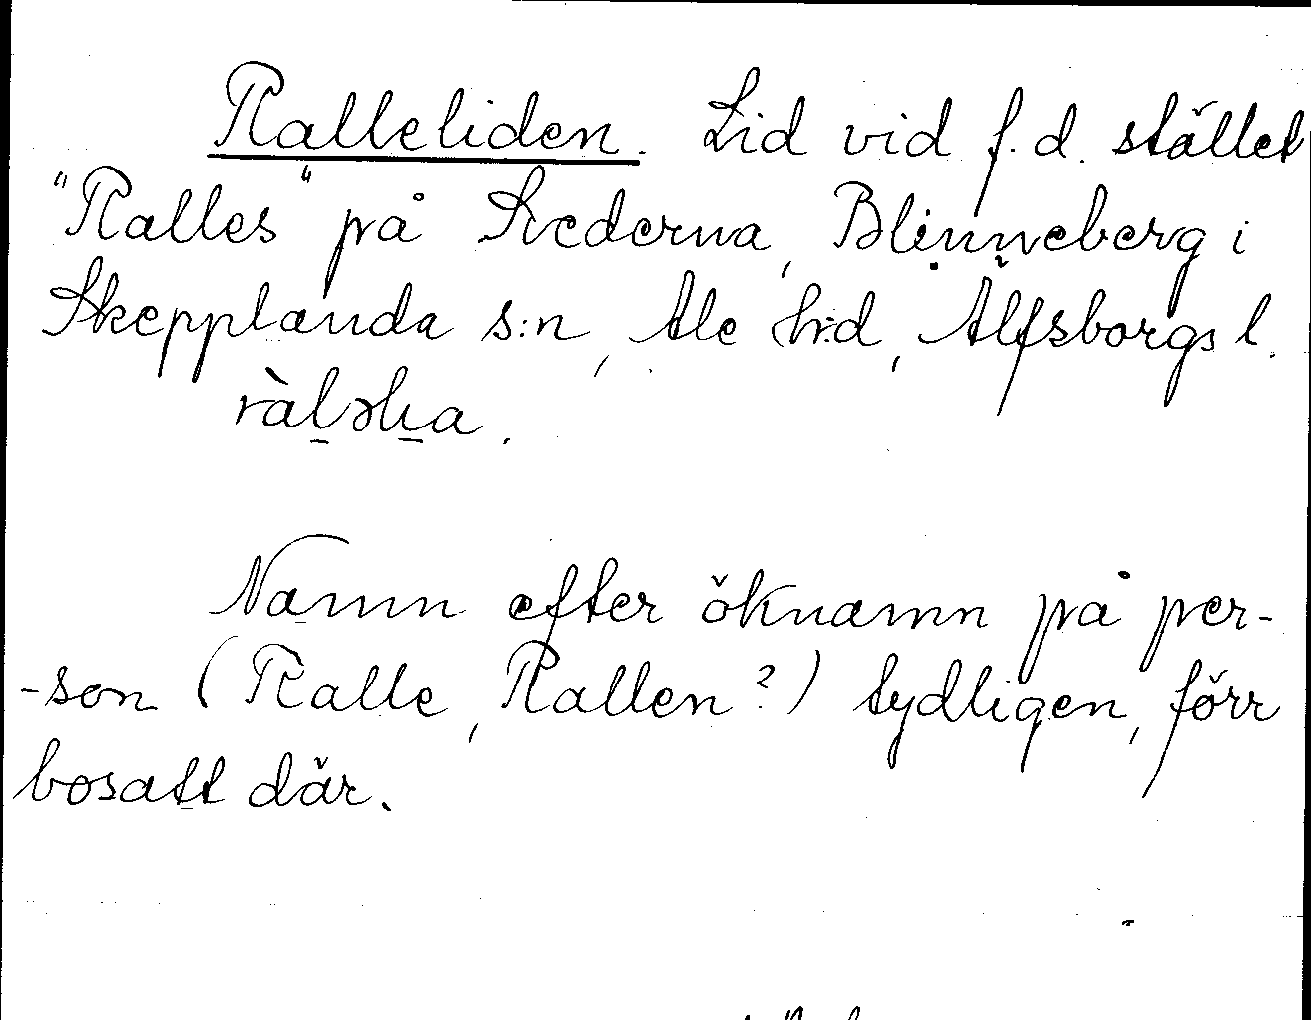 Ralleliden. Lid vid f.d. stället
"Ralles" på Svederna, Blinneberg i
Skepplanda s:n, Ale h:d, Älfsborgs l.
Namn efter öknamn på per-
-son (Ralle, Rallen?) tydligen, förr
bosatt där.